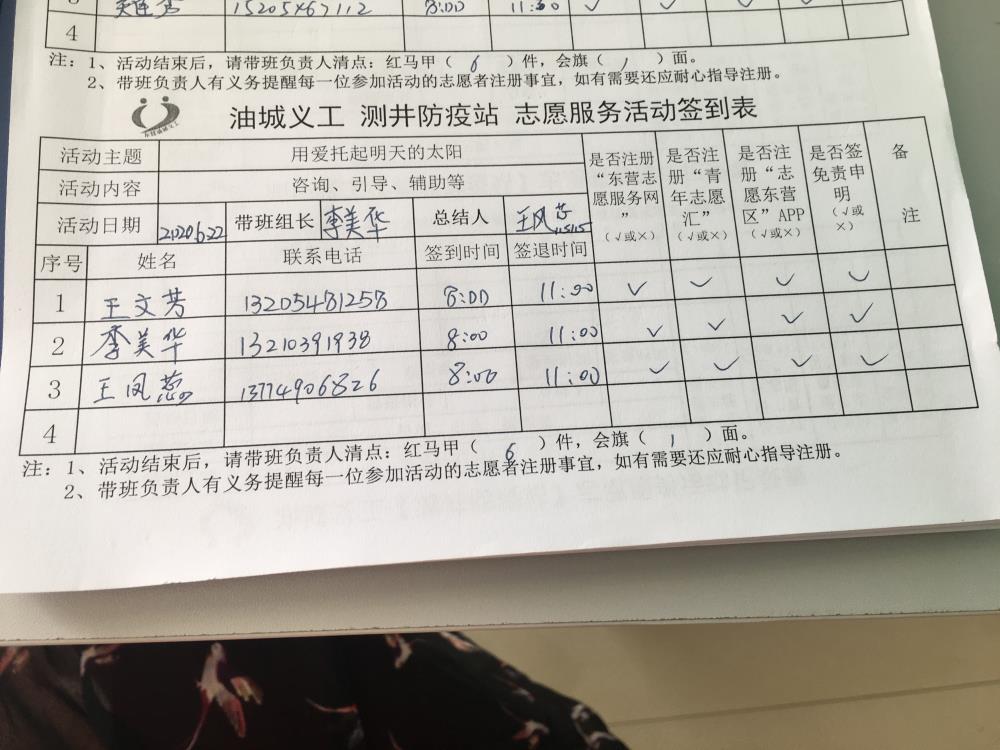 15205467112 8:00 11:00 ✓ ✓ ✓ ✓
4
注：1、活动结束后，请带班负责人清点：红马甲（ 6 ）件，会旗（ 1 ）面。
2、带班负责人有义务提醒每一位参加活动的志愿者注册事宜，如有需要还应耐心指导注册。
油城义工 测井防疫站 志愿服务活动签到表
活动主题 用爱托起明天的太阳 是否注册“东营志愿服务网”（√或×） 是否注册“青年志愿汇”（√或×） 是否注册“志愿东营区”APP（√或×） 是否签免责申明（√或×） 备注
活动内容 咨询、引导、辅助等
活动日期 2020.6.22 带班组长 李美华 总结人 王凤蕊
序号 姓名 联系电话 签到时间 签退时间
1 王文芳 13205481258 8:00 11:00 ✓ ✓ ✓ ✓
2 李美华 13210391938 8:00 11:00 ✓ ✓ ✓ ✓
3 王凤蕊 13774906826 8:00 11:00 ✓ ✓ ✓ ✓
4
注：1、活动结束后，请带班负责人清点：红马甲（ 6 ）件，会旗（ 1 ）面。
2、带班负责人有义务提醒每一位参加活动的志愿者注册事宜，如有需要还应耐心指导注册。